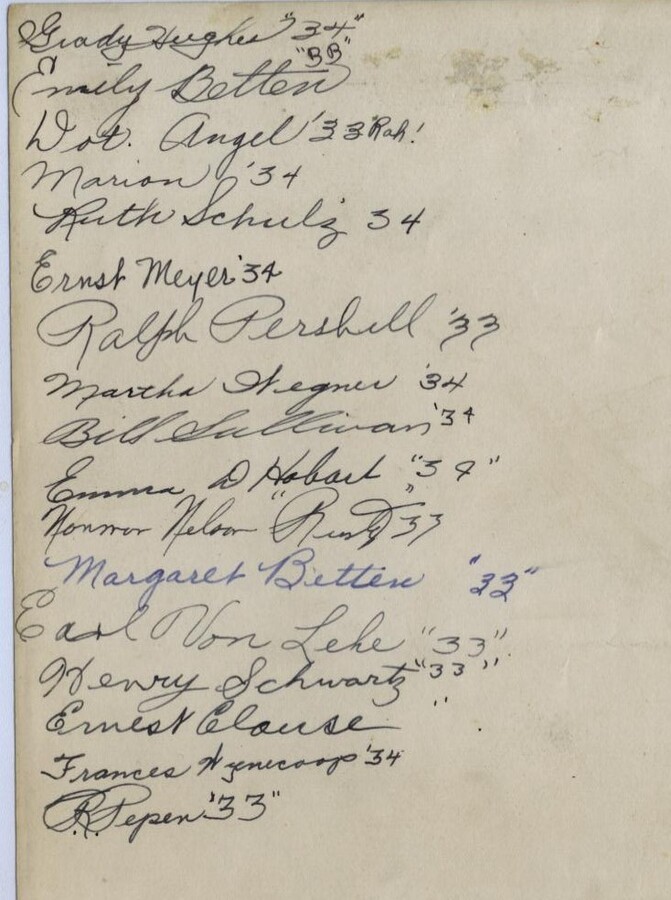 Grady Hughes "34"
"BB"
Emily Betten
Dot. Angel '33 Rah!
Marion '34
Ruth Schulz 34
Ernst Meyer '34
Ralph Pershell '33
Martha Wegner '34
Bill Sullivan '34
Emma D Hobart "34"
Norman Nelson "Rusty" 33
Margaret Betten "33"
Earl Von Lehe "33"
Henry Schwartz "33"
Ernest Clouse "
Frances Wynecoop '34
R. Pepen '33"